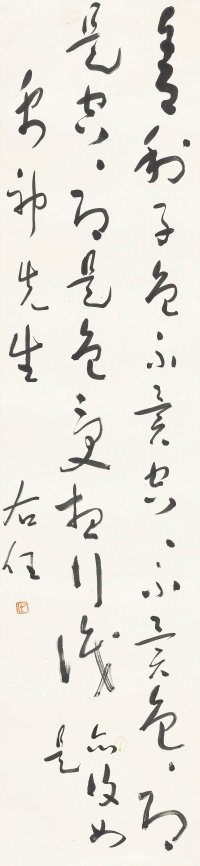 舍利子色不異空、不異色、即
是空、即是色受想行識亦復如
是
先生
右任